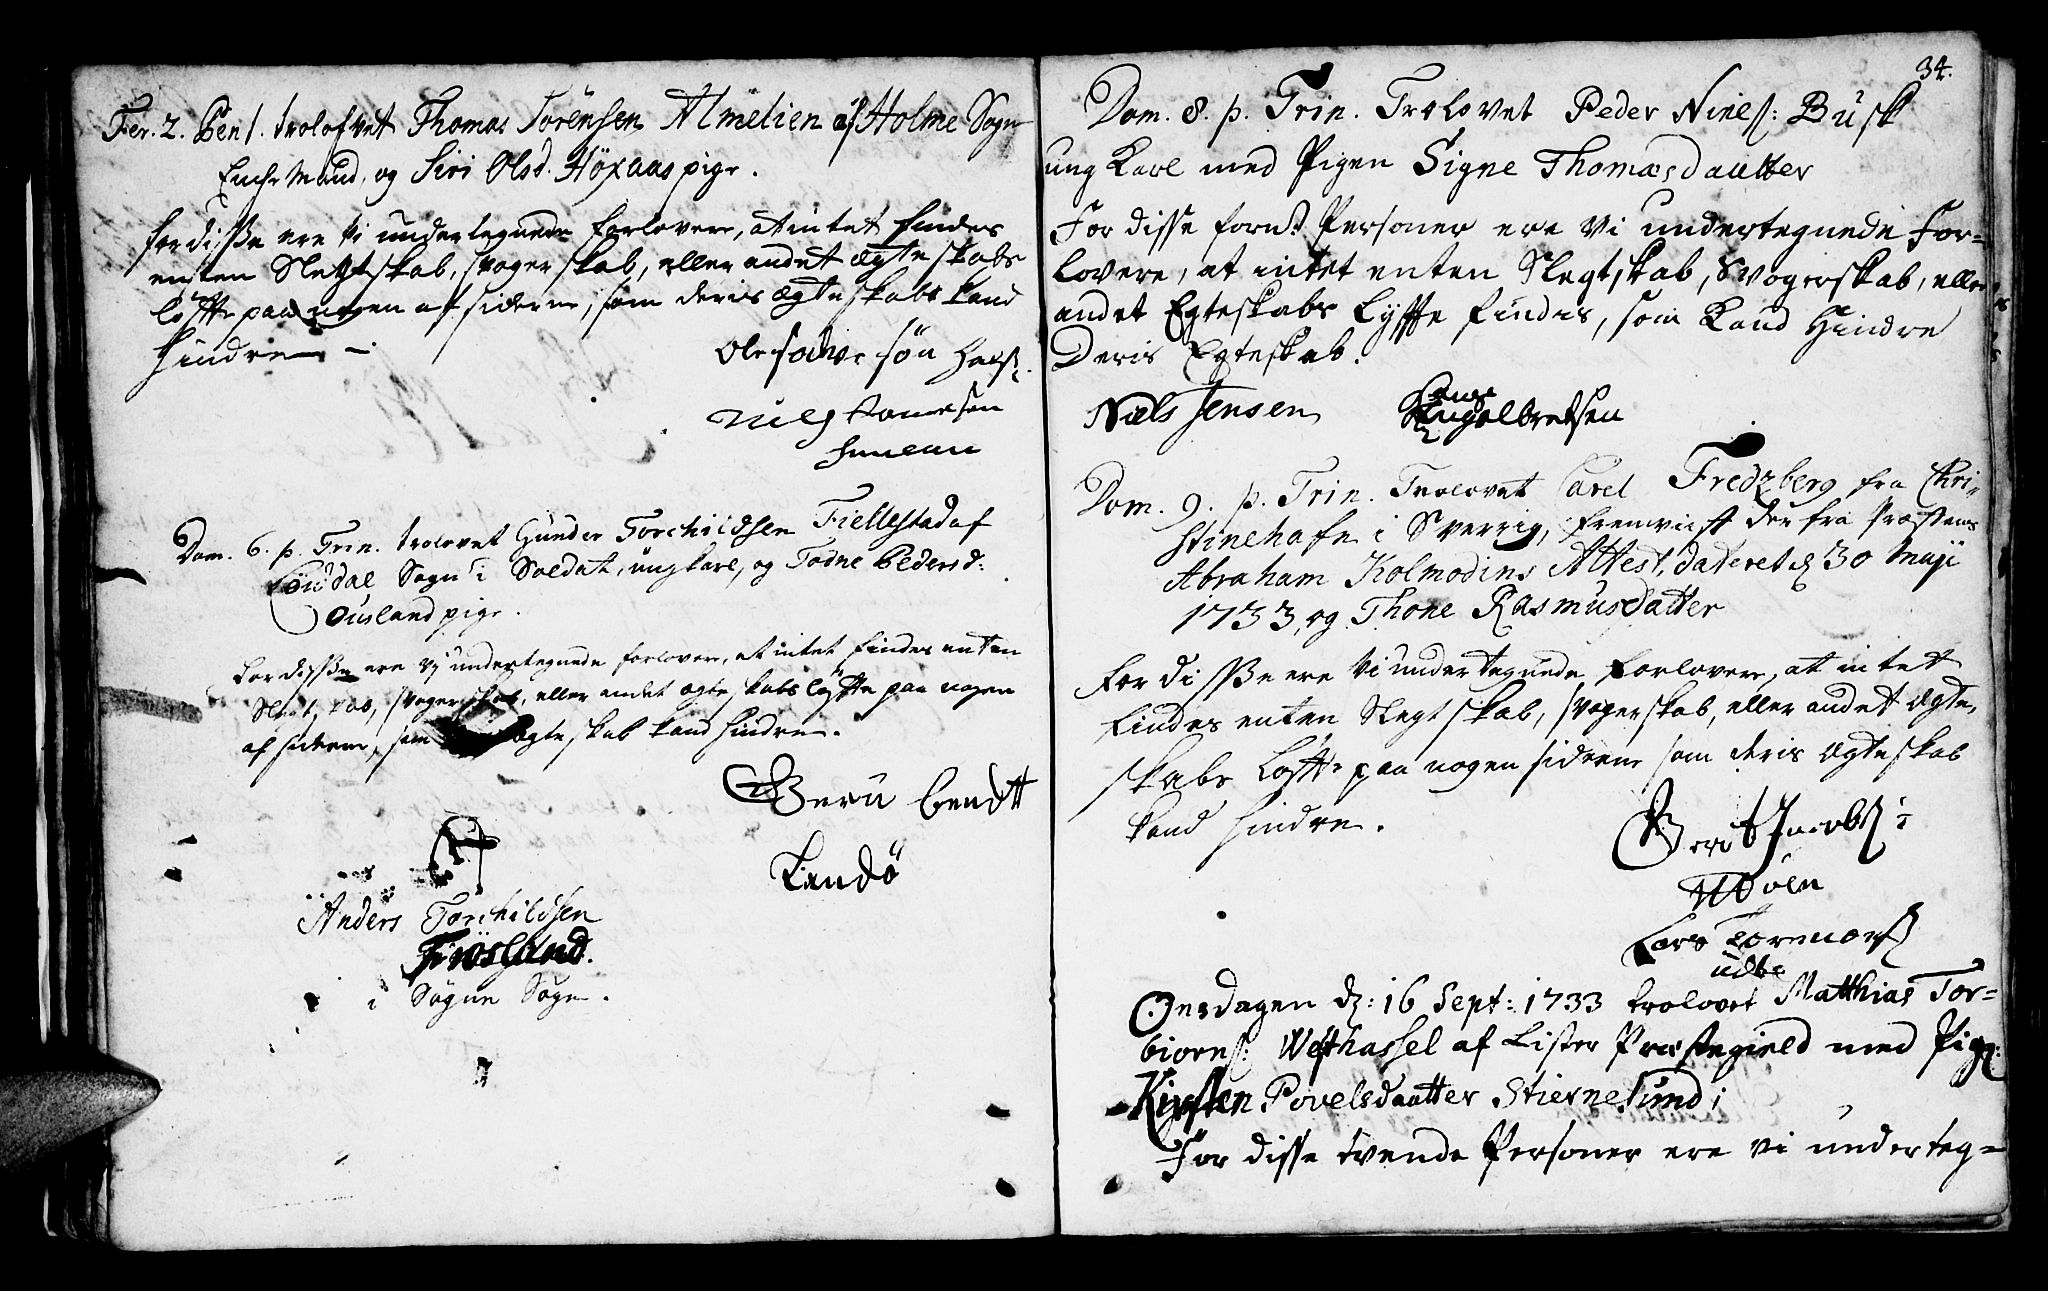 Fer. 2. Pent. trolofvet Thomas Sörensen Almelien af Holme Sogn
Enche Mand, og Siri Olsd. Höxaas pige.
for disse ere Vi undertegnede forlovere, at intet findes
enten Slegtskab, svogerskab, eller andet ægteskabs
löffte paa nogen af siderne, som deris ægteskab kand
hindre –
Ole söhn
Niels
Dom. 6. p. Trin. trolovet Gunder Torchildsen Fiellestad af
Oudal Sogn i Soldat, ung karl, og Todne Pedersd:
Ousland pige.
For disse ere Vj undertegnede forlovere, at intet findes enten
Slegtskab, svogerskab, eller andet ægteskabs löffte paa nogen
af siderne, som ægteskab kand hindre.
Bendt
Landö
Anders Torchildsen
Fiösland.
i Sögne Sogn.
34.
Dom. 8. p. Trin. Trolovet Peder Nielß: Busk
ung Karl med Pigen Signe Thomasdautter
For disse fornt. Personer ere Vi undertegnede For=
lovere, at intet enten Slegtskab, Svogerskab, eller
andet Egteskabs Lyffte findis, som Kand Hindre
Deris Egteskab.
Niels Jensen Engelbretsen
Dom. 9. p. Trin. Trolovet Carel Fredzberg fra Chri-
stinehafn i Sverrig, fremviist der fra Præstens
Abraham Kolmodins Attest, dateret d 30 Maji
1733, og Thone Rasmusdatter
For disse ere Vi undertegnede forlovere, at intet
findes enten Slegtskab, svogerskab, eller andet ægte-
skabs Löffte paa nogen siderne som deris ægteskab
kand hindre.
Berent Jacobß:
Möen
Lars
Onsdagen d: 16 Sept: 1733 trolovet Matthias Tor=
biörnß: Westhassel af Lister Præstegield med Pigen:
Kirsten Povelsdautter Stiernesund;
For disse tvende Personer ere vi underteg=